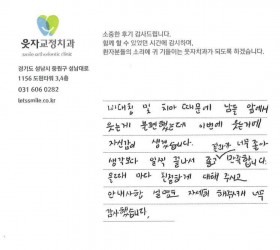 웃자교정치과
smile orthodontic clinic
경기도 성남시 중원구 성남대로
1156 도현타워 3,4층
031 606 0282
letssmile.co.kr
소중한 후기 감사드립니다.
함께 할 수 있었던 시간에 감사하며,
환자분들의 소리에 귀 기울이는 웃자치과가 되도록 하겠습니다.
비대칭 및 치아 때문에 남들 앞에서
웃는게 불편했는데 이번에 웃는거에
자신감이 생겼습니다. 결과가 너무 좋아
생각보다 일찍 끝나서 좋고 만족합니다.
올때마다 친절하게 대해 주시고
안내사항 설명도 자세히 해주셔서 너무
감사했습니다.